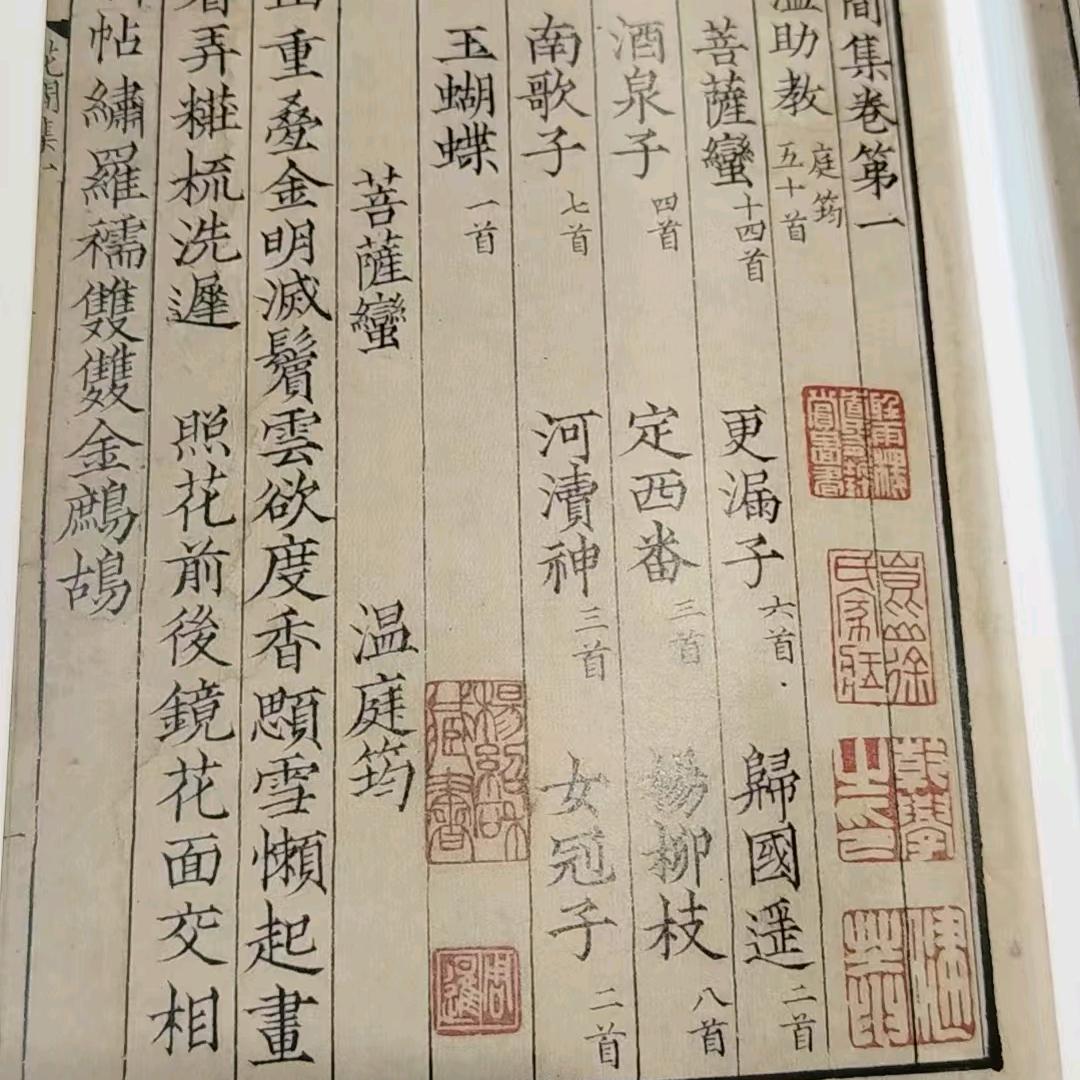 間集卷第一
温助教 庭筠 五十首
菩薩蠻 十四首 更漏子 六首 歸國遥 二首
酒泉子 四首 定西番 三首 楊柳枝 八首
南歌子 七首 河瀆神 三首 女冠子 二首
玉蝴蝶 一首
菩薩蠻 温庭筠
山重疊金明滅鬢雲欲度香顋雪懶起畫
弄糚梳洗遲 照花前後鏡花面交相
帖繡羅襦雙雙金鷓鴣
花間集一
崑山徐氏家藏
乾學之印
健菴
周暹